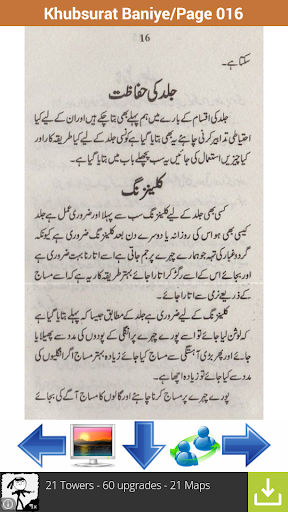 Khubsurat Baniye/Page 016
16
سکتا ہے۔
جلد کی حفاظت
جلد کی اقسام کے بارے میں ہم پہلے بھی بتا چکے ہیں اور ان کے لیے کیا
احتیاطی تدابیر کرنی چاہئے یہ بھی بتایا گیا ہے کونسی جلد کے لیے کیا طریقہ کار اور
کیا چیزیں استعمال کی جائیں یہ سب پچھلے باب میں بتایا گیا ہے۔
کلینزنگ
کسی بھی جلد کے لیے کلینزنگ سب سے پہلا اور ضروری عمل ہے جلد
کیسی بھی ہو اس کی روزانہ یا دوسرے دن بعد کلینزنگ ضروری ہے کیونکہ
گرد و غبار کی تہہ جو ہمارے چہرے پر جم گئی ہے اسے اتارنا بہت ضروری ہے
اور بجائے اس کے اسے رگڑ کر اتارا جائے بہتر طریقہ کار یہ ہے کہ اسے مساج
کے ذریعے نرمی سے اتارا جائے۔
کلینزنگ کے لیے ضروری ہے جلد کے مطابق جیسا کہ پہلے بتایا گیا ہے
کہ لوشن لیا جائے تو اسے پورے چہرے پر انگلی کے پوروں کی مدد سے پھیلایا
جائے اور پھر بڑی آہستگی سے مساج کیا جائے زیادہ بہتر مساج اگر انگلیوں کی
مدد سے کیا جائے تو زیادہ اچھا ہے۔
پورے چہرے پر مساج کرنا چاہئے اور گالوں کا مساج آگے کی بجائے
21 Towers - 60 upgrades - 21 Maps